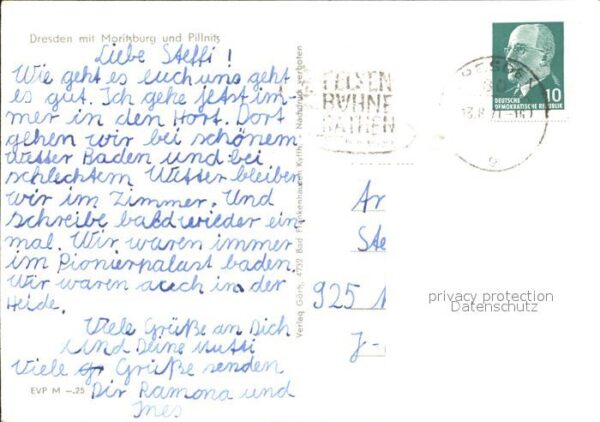 Dresden mit Moritzburg und Pillnitz
Liebe Steffi!
Wie geht es euch uns geht
es gut. Ich gehe jetst im-
mer in den Hort. Dort
gehen wir bei schönem
Wetter Baden und bei
schlechtem Wetter bleiben
wir im Zimmer. Und
schreibe bald wieder ein
mal. Wir waren immer
im Pionierpalast baden.
Wir waren auch in der
Heide.
Viele Grüße an Dich
und Deine Mutti
Viele Grüße senden
Dir Ramona und
Ines
EVP M –.25
Verlag Görtz, 4732 Bad Frankenhausen Kyffh. Nachdruck verboten
FELSEN
BÜHNE
RATHEN
DRESDEN
10
DEUTSCHE
DEMOKRATISCHE REPUBLIK
An
Ste
925
J-
privacy protection
Datenschutz